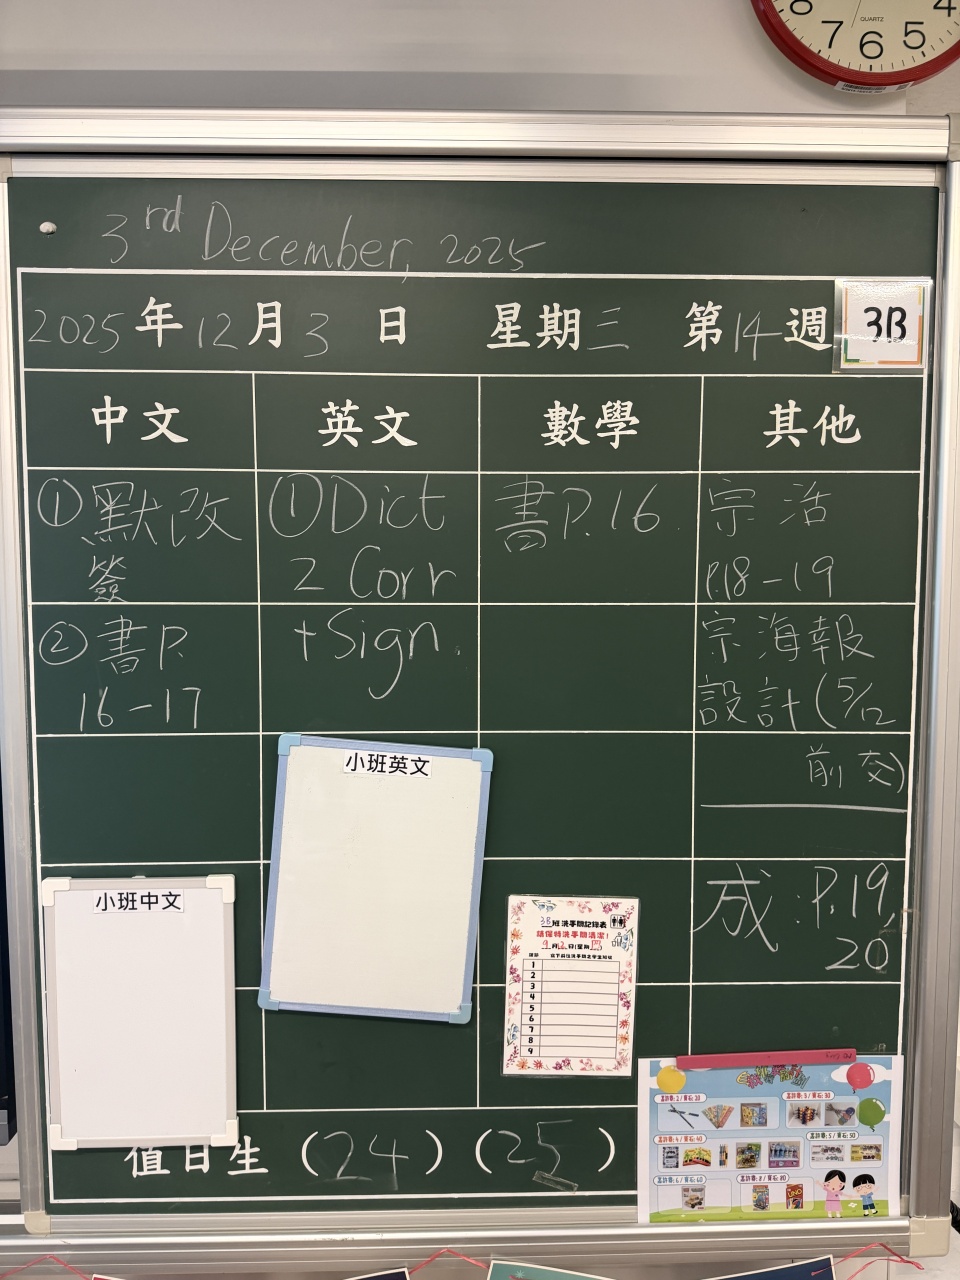 QUARTZ
8 7 6 5 4
3rd December, 2025
2025年12月3日 星期三 第14週
3B
中文 英文 數學 其他
①默改
簽
②書P.
16-17
①Dict
2 Corr
+Sign.
書P.16.
宗 活
P.18-19
宗 海報
設計(5/12
前交)
成:P.19,
20
小班英文
小班中文
3B班洗手間記錄表
請保持洗手間清潔!
1
2
3
4
5
6
7
8
9
值日生 (24) (25)
UNO